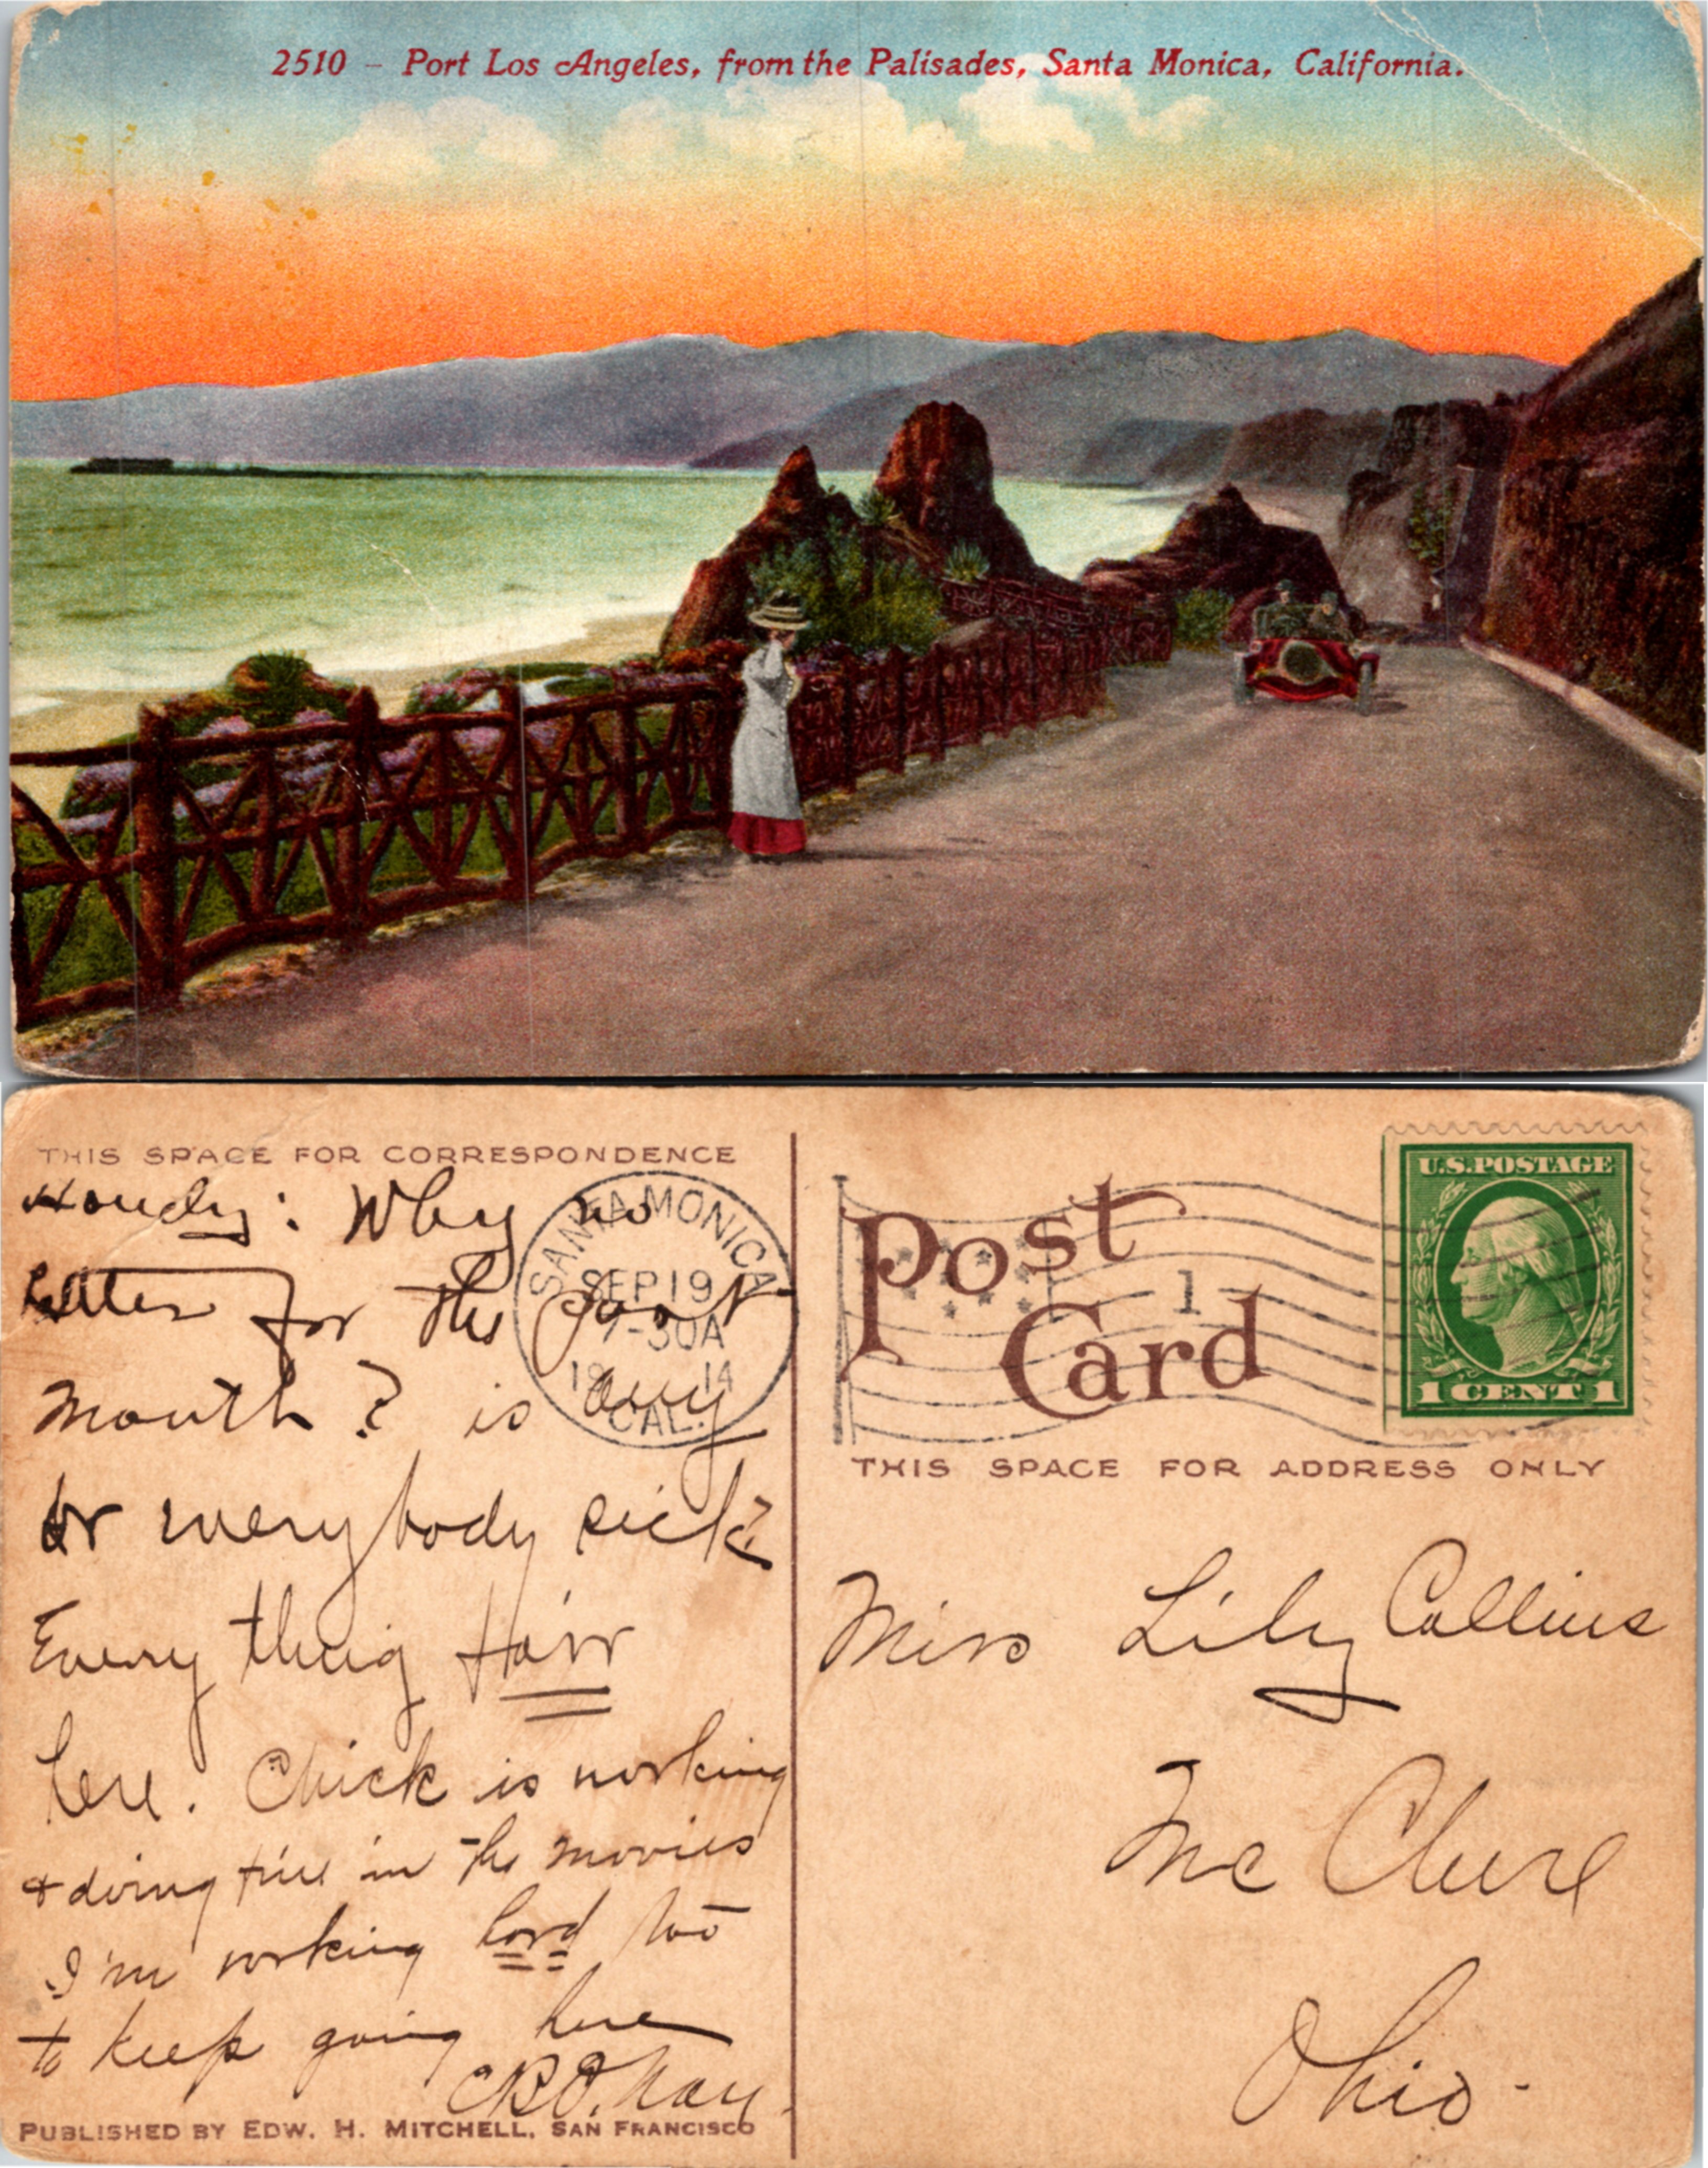 2510 – Port Los Angeles, from the Palisades, Santa Monica, California.
THIS SPACE FOR CORRESPONDENCE
Howdy: Why no
letter for the past
month? is any
or everybody sick?
Every thing fair
here. Chick is working
& doing fine in the movies
I'm working hard too
to keep going here
PUBLISHED BY EDW. H. MITCHELL, SAN FRANCISCO
SANTA MONICA
SEP 19
7-30A
1914
CAL.
Post
Card
1
U.S. POSTAGE
1 CENT 1
THIS SPACE FOR ADDRESS ONLY
Miss Lily Collins
McClure
Ohio.